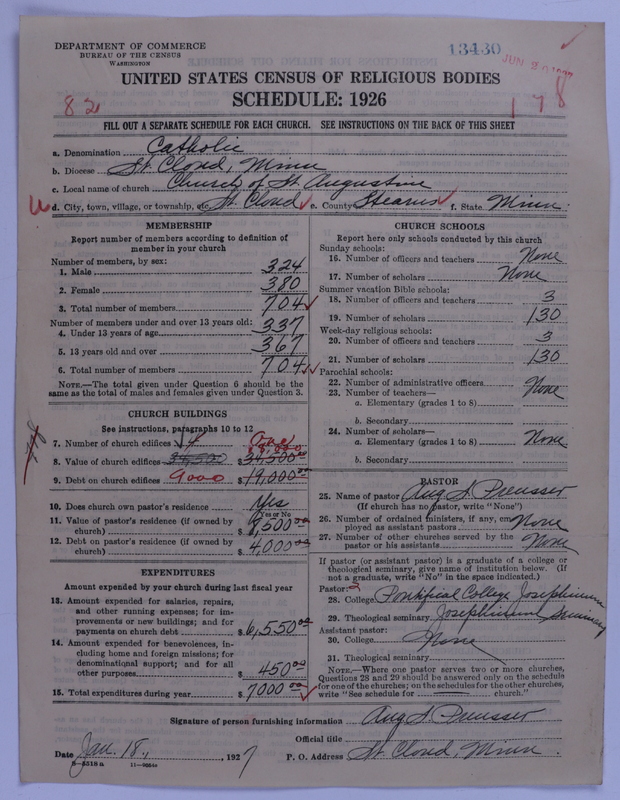 DEPARTMENT OF COMMERCE
BUREAU OF THE CENSUS
WASHINGTON
13430
JUN 2 0 1927
UNITED STATES CENSUS OF RELIGIOUS BODIES
SCHEDULE: 1926
82
178
FILL OUT A SEPARATE SCHEDULE FOR EACH CHURCH. SEE INSTRUCTIONS ON THE BACK OF THIS SHEET
a. Denomination Catholic
b. Diocese St. Cloud, Minn
c. Local name of church Church of St. Augustine
d. City, town, village, or township, etc. St. Cloud e. County Stearns f. State Minn.
MEMBERSHIP
Report number of members according to definition of
member in your church
Number of members, by sex:
1. Male 324
2. Female 380
3. Total number of members 704
Number of members under and over 13 years old:
4. Under 13 years of age 337
5. 13 years old and over 367
6. Total number of members 704
NOTE.—The total given under Question 6 should be
same as the total of males and females given under Question 3.
CHURCH BUILDINGS
See instructions, paragraphs 10 to 12
7. Number of church edifices 4 One
8. Value of church edifices $ 34,500 00
9. Debt on church edifices 9000 $ 19,000 00
10. Does church own pastor's residence Yes
Yes or No
11. Value of pastor's residence (if owned by
church) $ 8,500 00
12. Debt on pastor's residence (if owned by
church) $ 4,000 00
EXPENDITURES
Amount expended by your church during last fiscal year
13. Amount expended for salaries, repairs,
and other running expenses; for im-
provements or new buildings; and for
payments on church debt $ 6,550 00
14. Amount expended for benevolences, in-
cluding home and foreign missions; for
denominational support; and for all
other purposes $ 450 00
15. Total expenditures during year $ 7000 00
CHURCH SCHOOLS
Report here only schools conducted by this church
Sunday schools:
16. Number of officers and teachers None
17. Number of scholars None
Summer vacation Bible schools:
18. Number of officers and teachers 3
19. Number of scholars 130
Week-day religious schools:
20. Number of officers and teachers 3
21. Number of scholars 130
Parochial schools:
22. Number of administrative officers None
23. Number of teachers—
a. Elementary (grades 1 to 8)
b. Secondary
24. Number of scholars—
a. Elementary (grades 1 to 8) None
b. Secondary
PASTOR
25. Name of pastor Aug. S. Preusser
(If church has no pastor, write "None")
26. Number of ordained ministers, if any, em-
ployed as assistant pastors None
27. Number of other churches served by the
pastor or his assistants None
If pastor (or assistant pastor) is a graduate of a college or
theological seminary, give name of institution below. (If
not a graduate, write "No" in the space indicated.)
Pastor:
28. College Pontifical College Josephinum
29. Theological seminary Josephinum Seminary
Assistant pastor:
30. College None
31. Theological seminary
NOTE.—Where one pastor serves two or more churches,
Questions 28 and 29 should be answered only on the schedule
for one of the churches; on the schedules for the other churches,
write "See schedule for church."
Signature of person furnishing information Aug. S. Preusser
Official title
Date Jan. 18., 1927 P. O. Address St. Cloud, Minn.
8-5518 a 11-9984